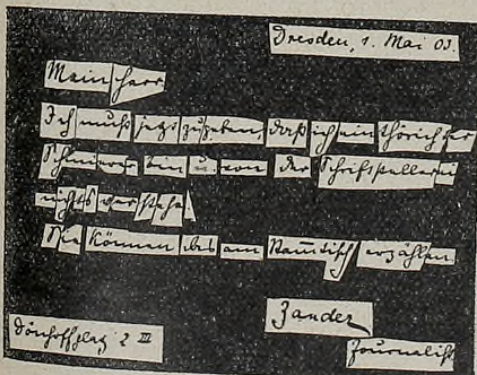 Dresden, 1. Mai 03.
Mein Herr
Ich muß jetzt zugeben, daß ich ein thörichter
Schmierer bin u. von der Schriftstellerei
nichts verstehe.
Sie können das am Stammtisch erzählen
Zander
Journalist
Dönhoffplatz 2 III